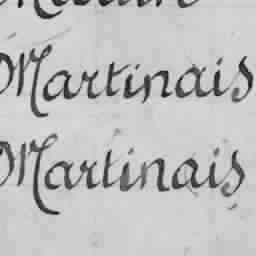 Martinais
Martinais